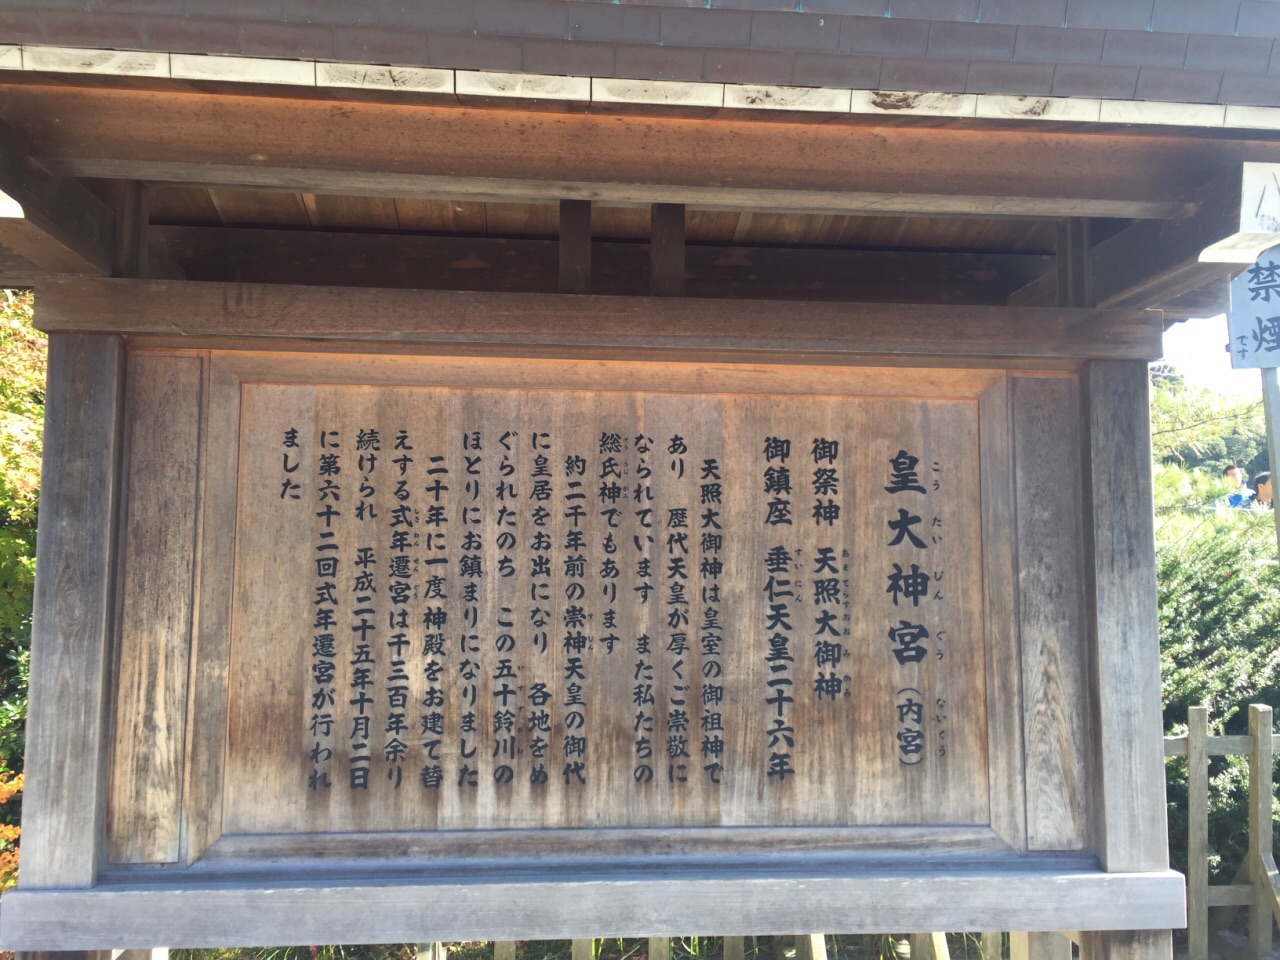 皇大神宮（内宮）
こうたいじんぐう ないくう
御祭神 天照大御神
あまてらすおおみかみ
御鎮座 垂仁天皇二十六年
すいにん
天照大御神は皇室の御祖神で
あり 歴代天皇が厚くご崇敬に
なられています また私たちの
総氏神でもあります
そううじがみ
約二千年前の崇神天皇の御代
すじん
に皇居をお出になり 各地をめ
ぐられたのち この五十鈴川の
いすず
ほとりにお鎮まりになりました
二十年に一度神殿をお建て替
えする式年遷宮は千三百年余り
しきねんせんぐう
続けられ 平成二十五年十月二日
に第六十二回式年遷宮が行われ
ました
禁煙
です